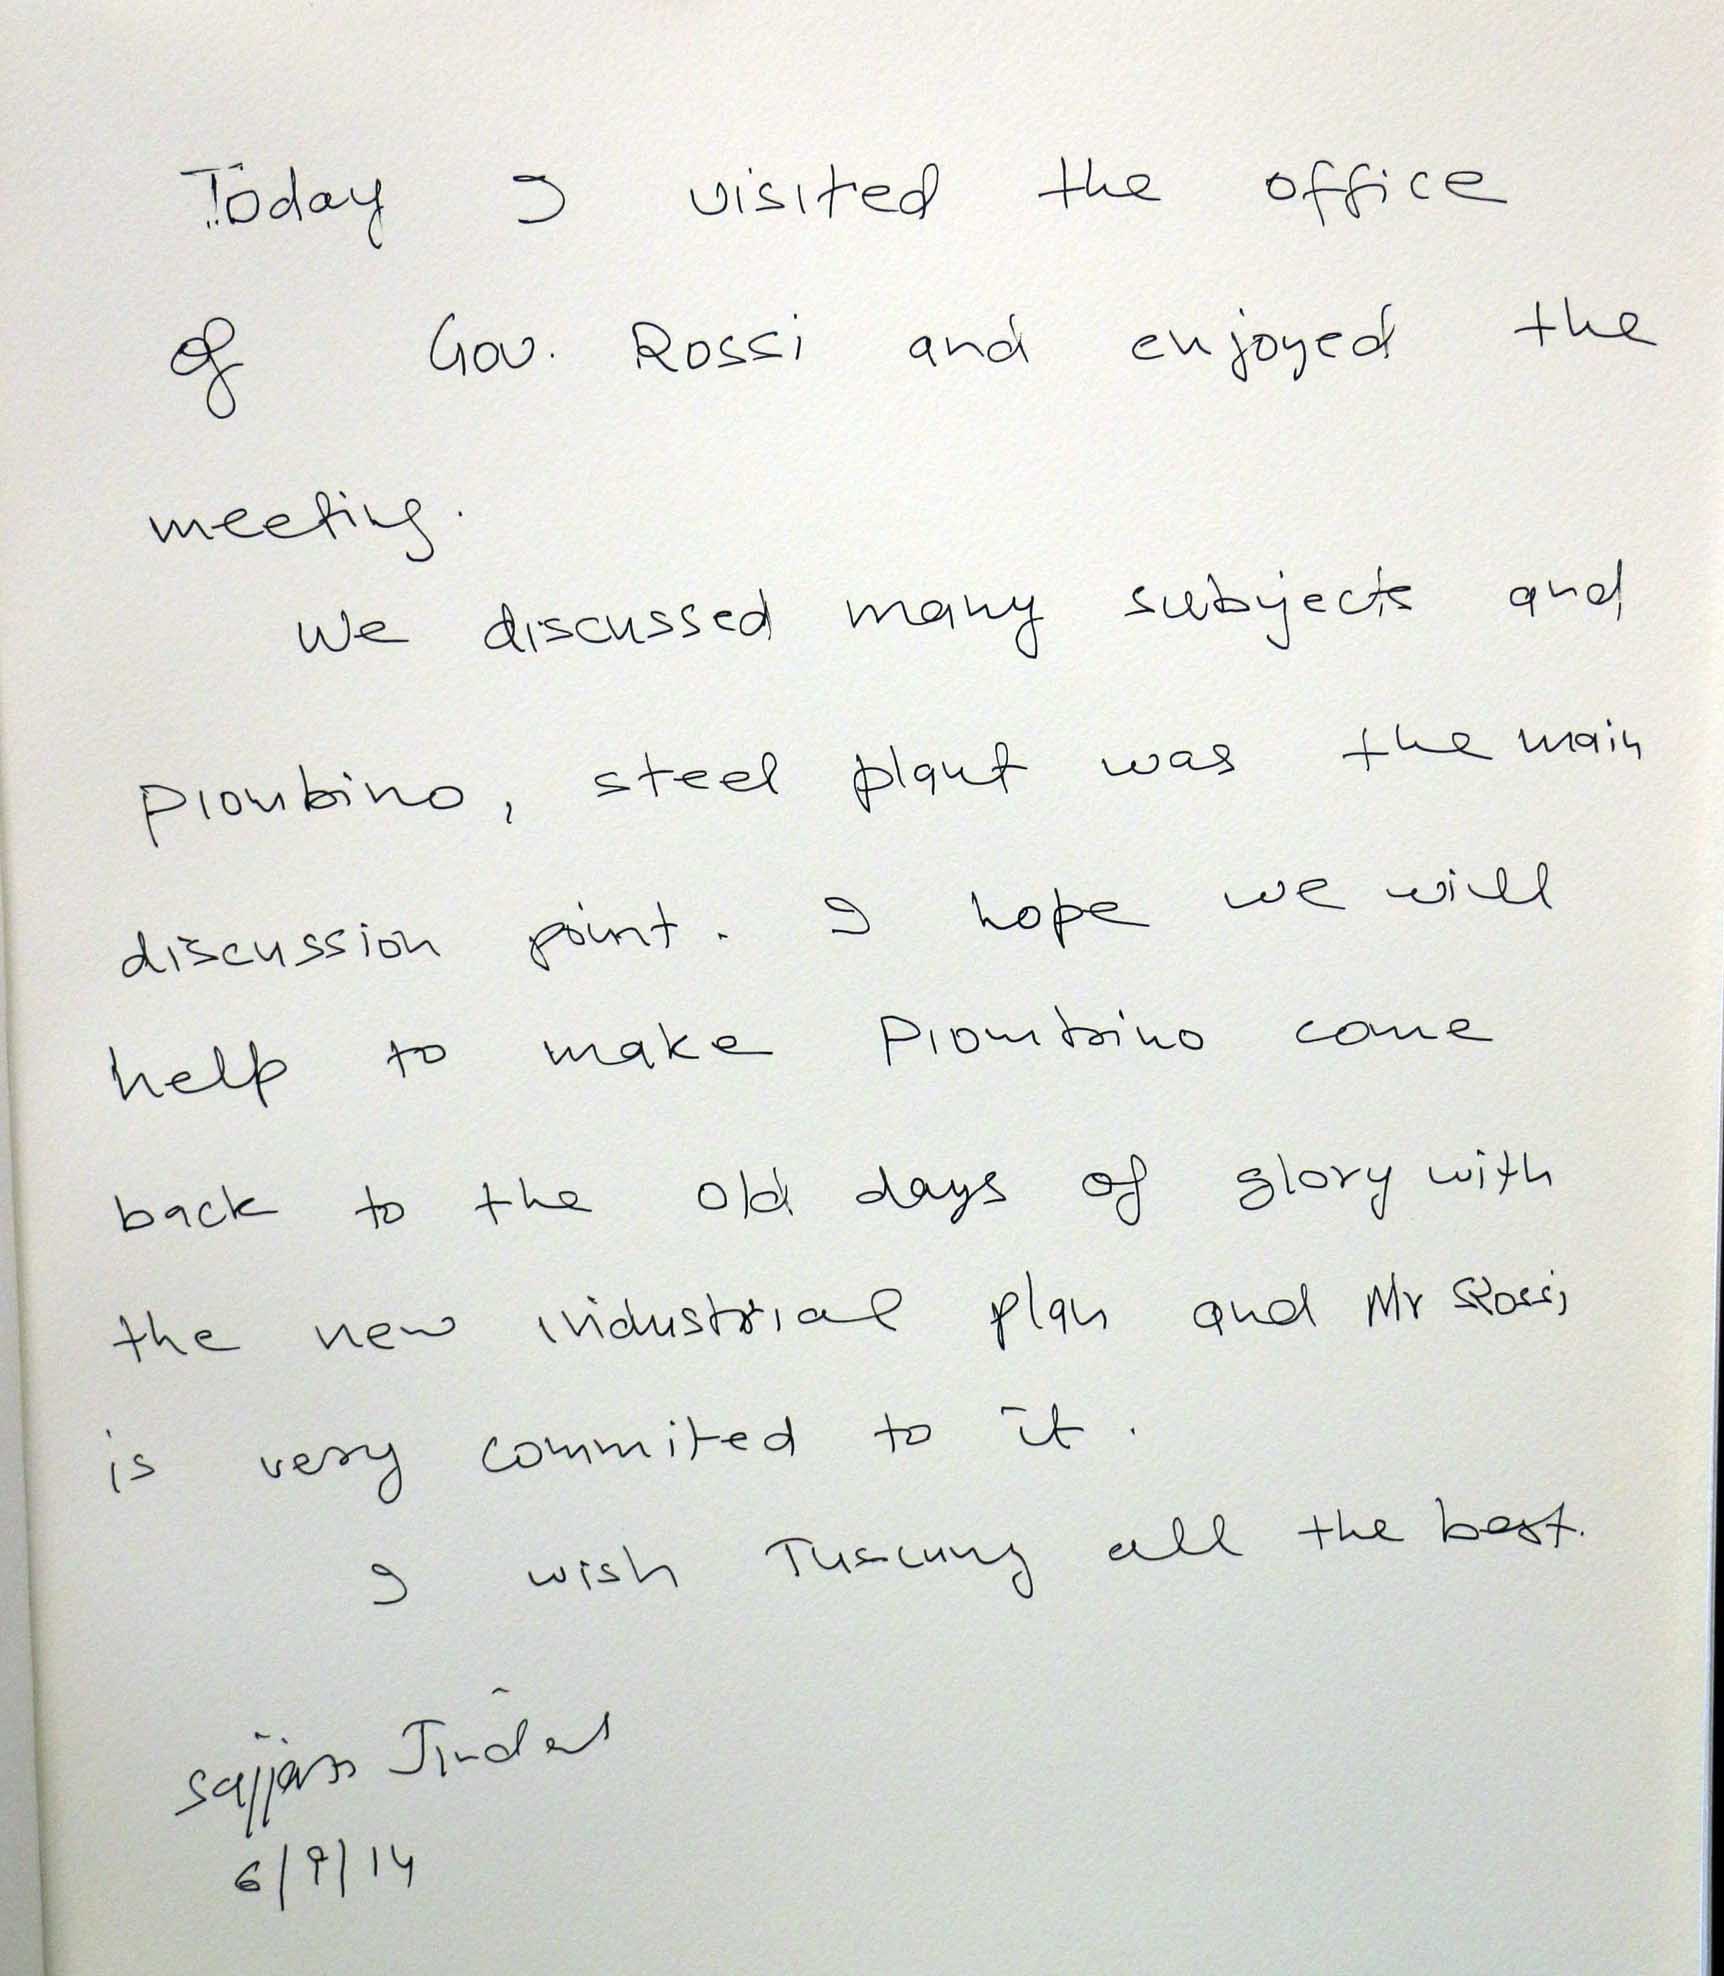 Today I visited the office
of Gov. Rossi and enjoyed the
meeting.
We discussed many subjects and
Piombino, steel plant was the main
discussion point. I hope we will
help to make Piombino come
back to the old days of glory with
the new industrial plan and Mr Rossi
is very commited to it.
I wish Tuscany all the best.
Sajjan Jindal
6/9/14